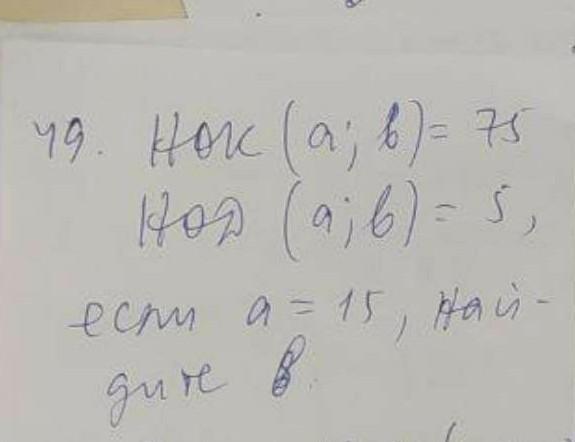 49. НОК (a; b) = 75
НОД (a; b) = 5,
если a = 15, най-
дите b.